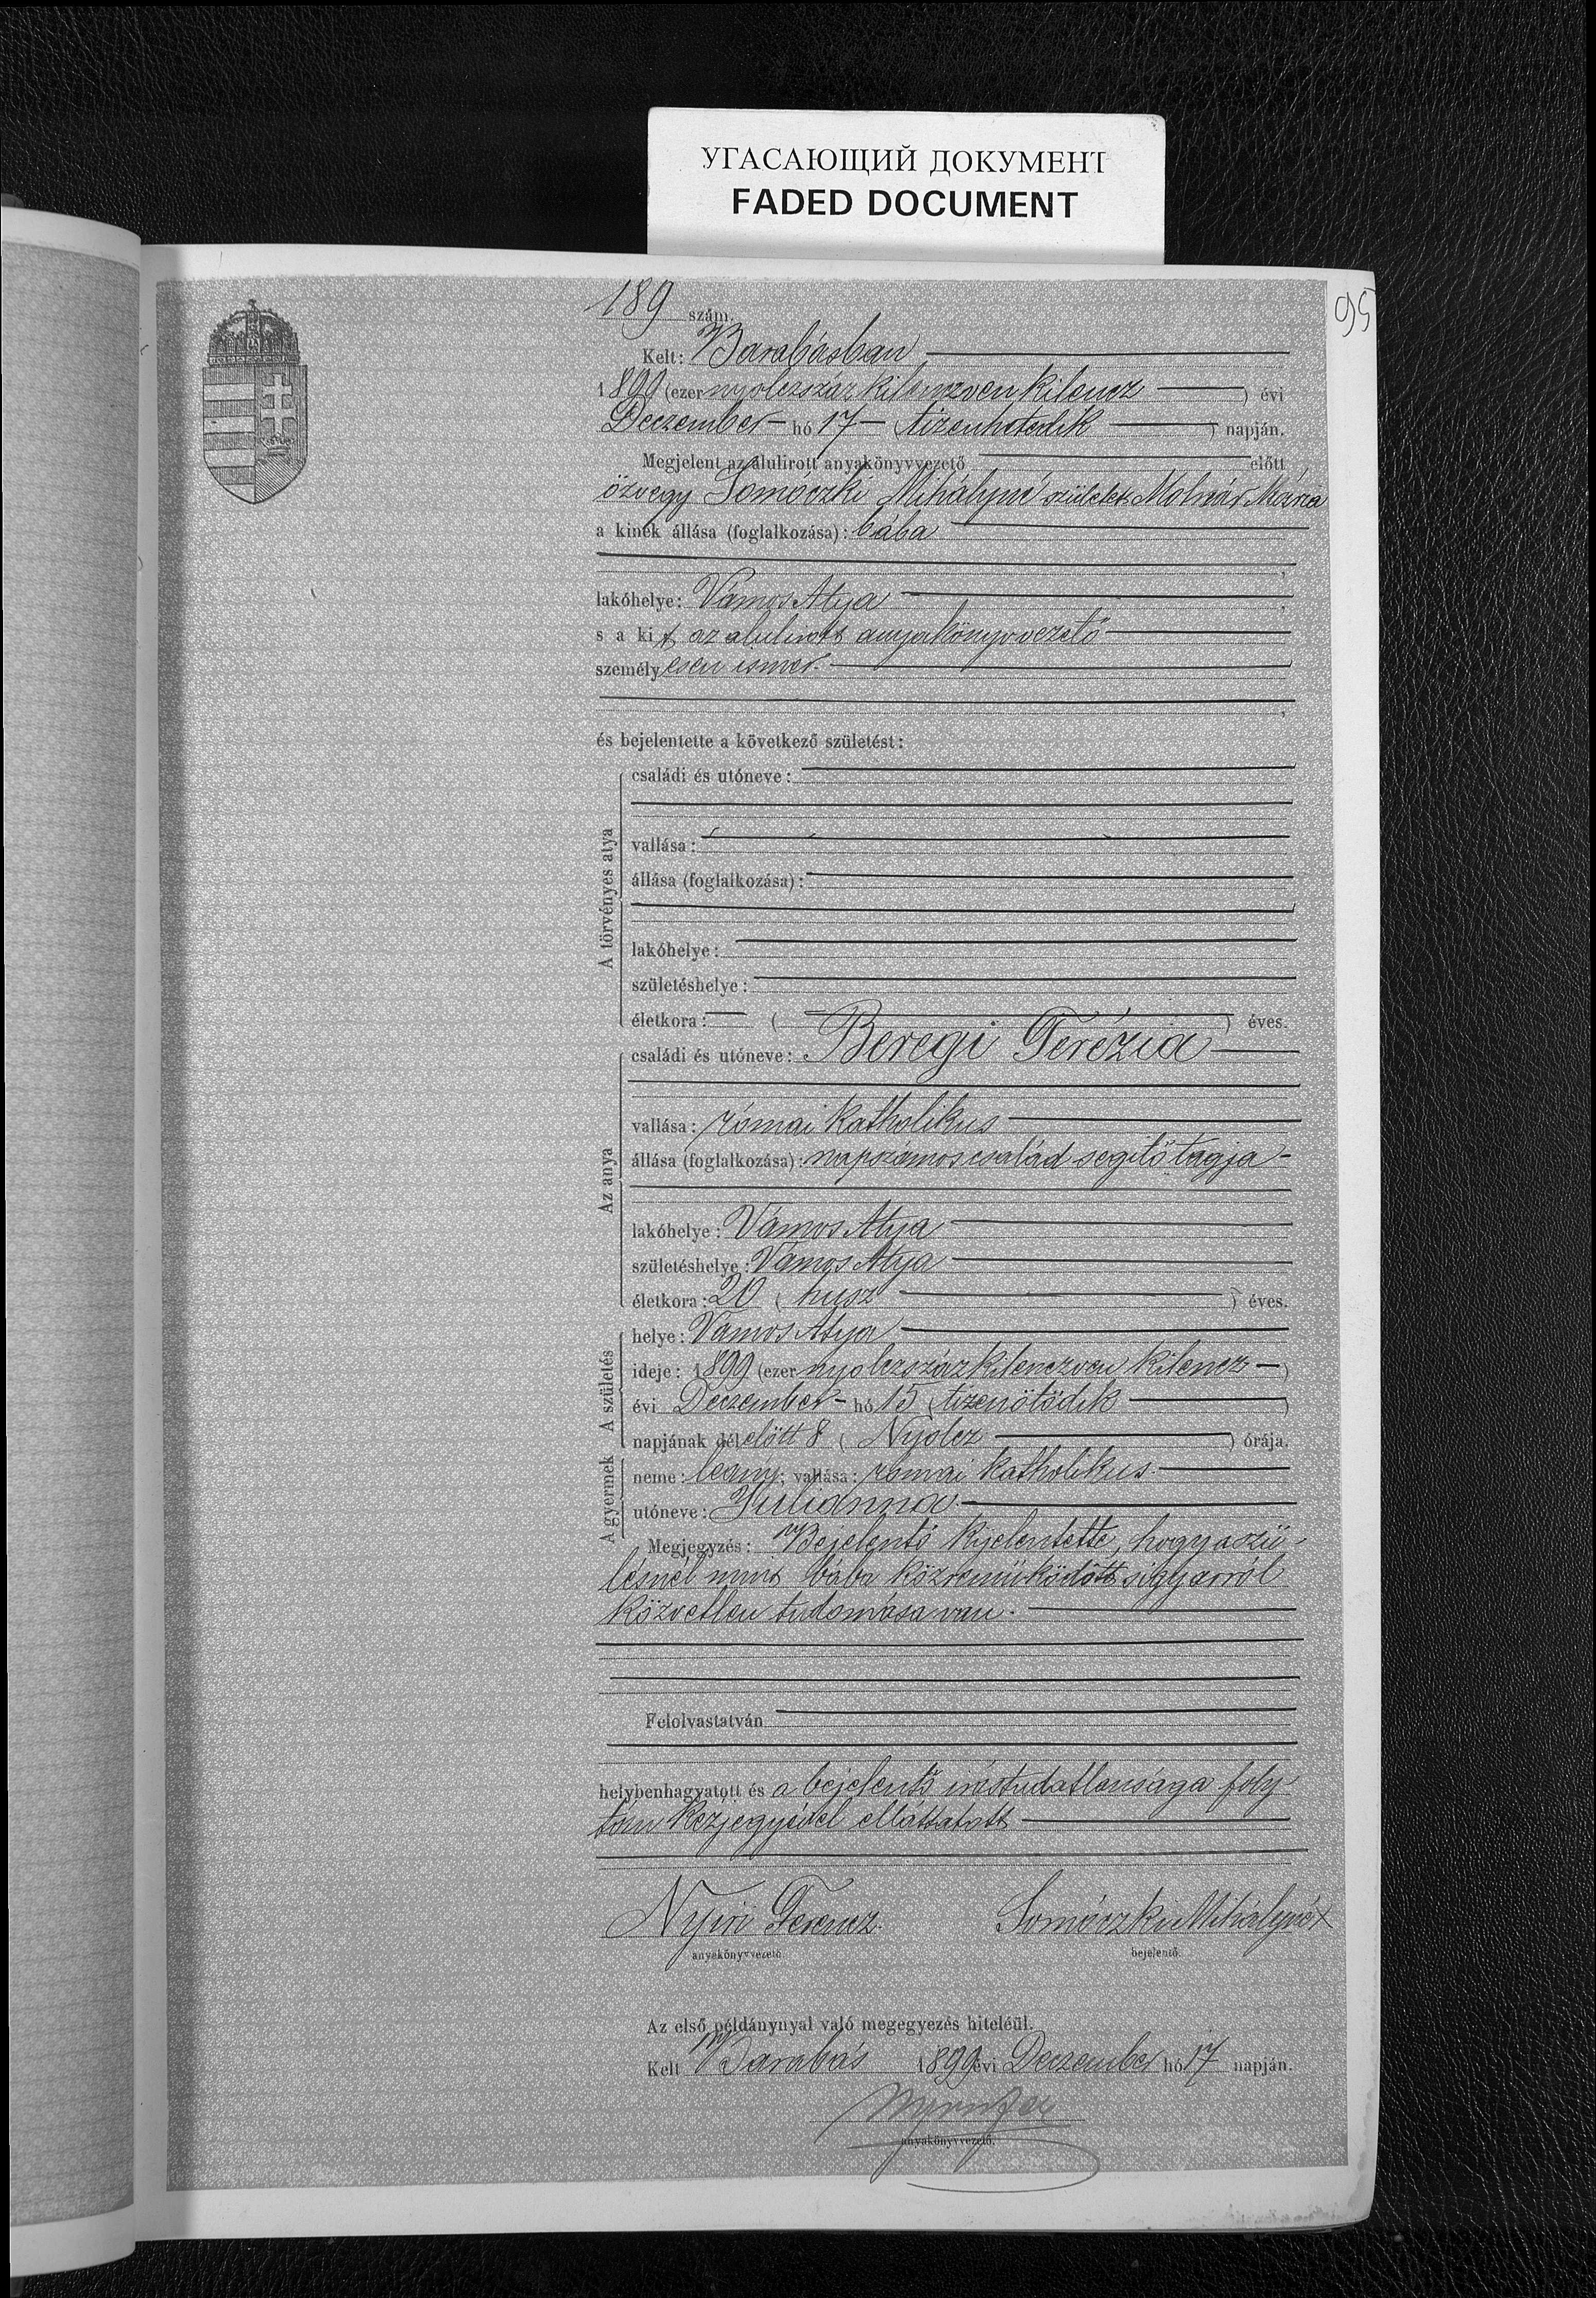 УГАСАЮЩИЙ ДОКУМЕНТ
FADED DOCUMENT
95
189 szám.
Kelt: Barabásban
1899 (ezer nyolczszáz kilenczven kilencz) évi
Deczember hó 17 (tizenhetedik) napján.
Megjelent az alulirott anyakönyvvezető előtt
özvegy Somóczki Mihályné született Molnár Mária
a kinek állása (foglalkozása): bába
lakóhelye: Vámos Atya
s a kit az alulirott anyakönyvvezető
személyesen ismer.
és bejelentette a következő születést:
A törvényes atya
családi és utóneve:
vallása:
állása (foglalkozása):
lakóhelye:
születéshelye:
életkora: ( ) éves.
Az anya
családi és utóneve: Beregi Terézia
vallása: római katholikus
állása (foglalkozása): napszámos család segitő tagja
lakóhelye: Vámos Atya
születéshelye: Vámos Atya
életkora: 20 (husz) éves.
A születés
helye: Vámos Atya
ideje: 1899 (ezer nyolczszáz kilenczven kilencz)
évi Deczember hó 15 (tizenötödik)
napjának délelőtt 8 (Nyolcz) órája.
A gyermek
neme: leány; vallása: római katholikus
utóneve: Julianna
Megjegyzés: Bejelentő kijelentette, hogy a szü-
lésnél mint bába közremüködött s igy arról
közvetlen tudomása van.
Felolvastatván
helybenhagyatott és a bejelentő irástudatlansága foly-
tán kézjegyével elláttatott
Nyiri Ferencz Somóczki Mihályné X
anyakönyvvezető. bejelentő.
Az első példánynyal való megegyezés hiteléül.
Kelt Barabás 1899 évi Deczember hó 17 napján.
anyakönyvvezető.